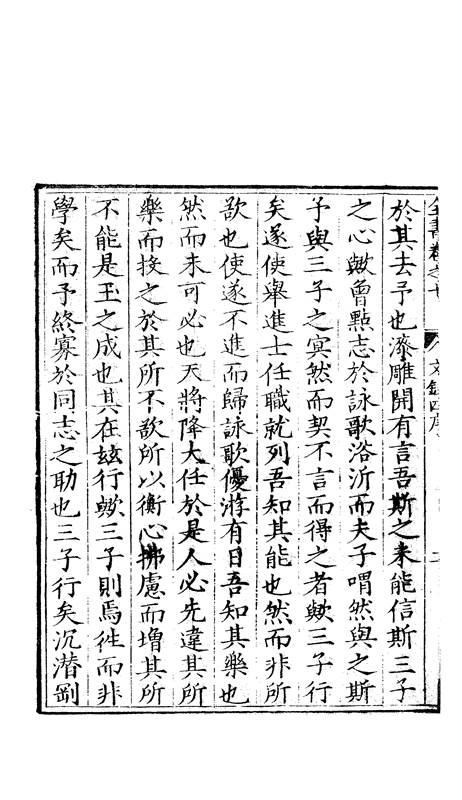 全書卷之七 文錄四序 二
於其去予也漆雕開有言吾斯之未能信斯三子
之心歟曾點志於詠歌浴沂而夫子喟然與之斯
予與三子之冥然而契不言而得之者歟三子行
矣遂使舉進士任職就列吾知其能也然而非所
欲也使遂不進而歸詠歌優游有日吾知其樂也
然而未可必也天將降大任於是人必先違其所
樂而投之於其所不欲所以衡心拂慮而增其所
不能是玉之成也其在玆行歟三子則焉徃而非
學矣而予終寡於同志之助也三子行矣沉潛剛